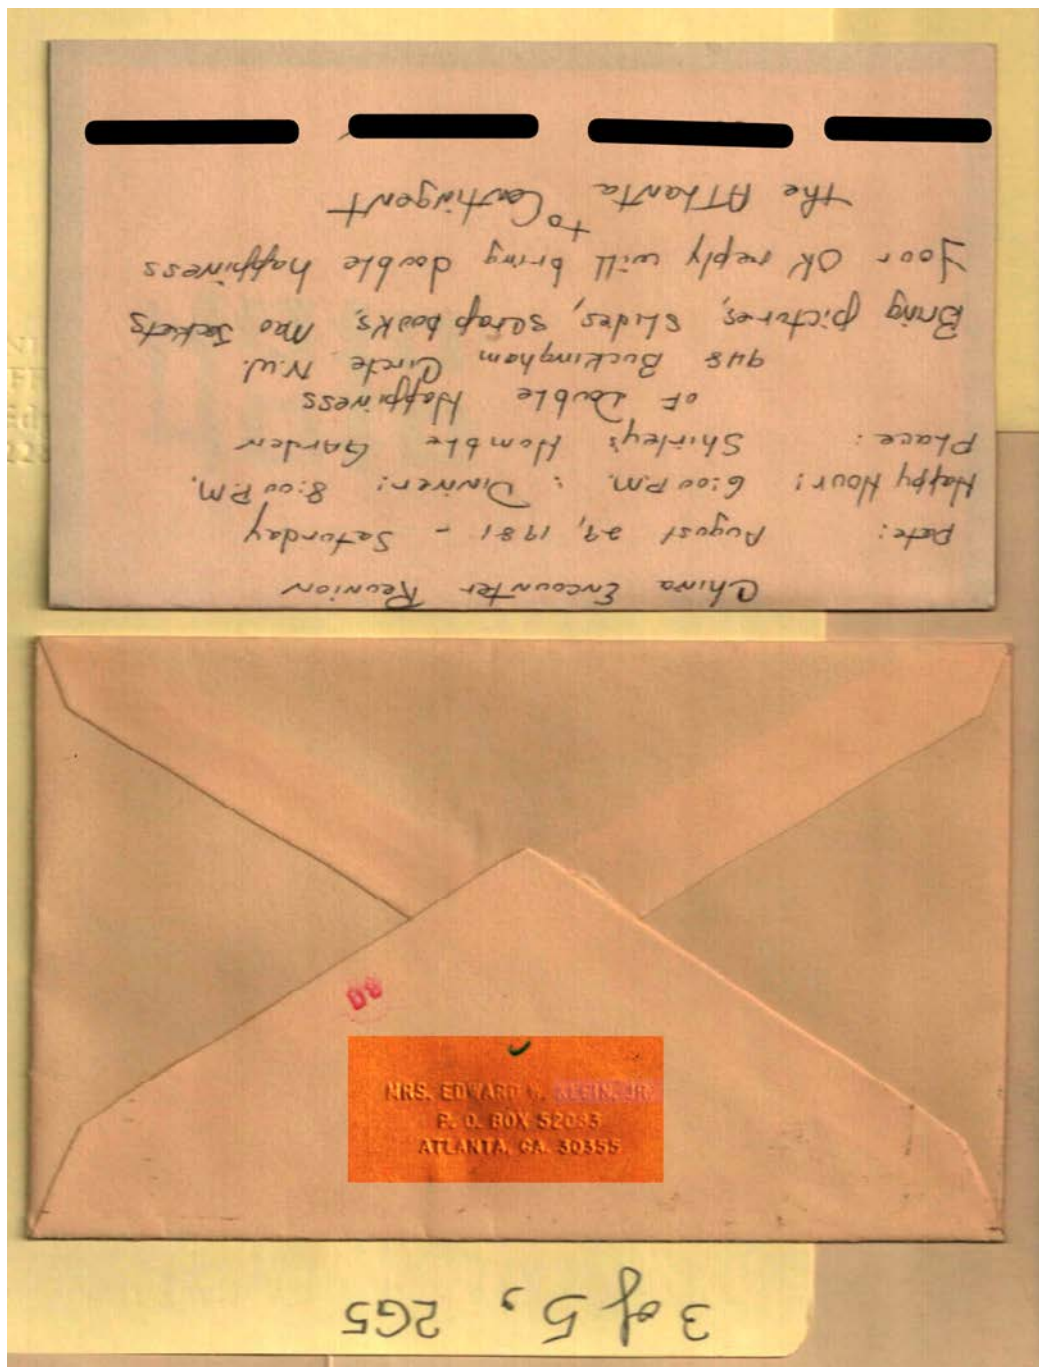 China Encounter Reunion
Date: August 29, 1981 - Saturday
Happy Hour: 6:00 P.M. : Dinner: 8:00 P.M.
Place: Shirley's Humble Garden
of Double Happiness
948 Buckingham Circle N.W.
Bring pictures, slides, scrapbooks, Mao Jackets
Your OK reply will bring double happiness
to
The Atlanta Contingent
MRS. EDWARD
P. O. BOX
ATLANTA, GA. 30355
3 of 5, 2G5